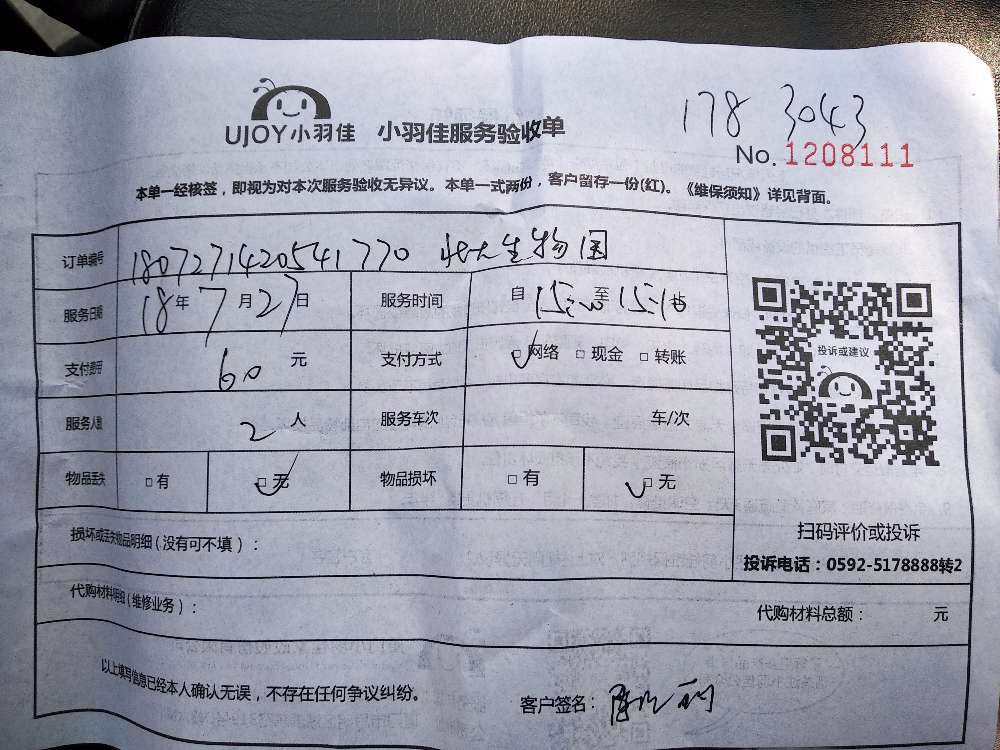 178 3043
UJOY小羽佳 小羽佳服务验收单
No. 1208111
本单一经核签，即视为对本次服务验收无异议。本单一式两份，客户留存一份(红)。《维保须知》详见背面。
订单编号 1807271420541770 生物园
服务日期 18年7月27日 服务时间 自15:00至15:1
支付费用 60 元 支付方式 □网络 □现金 □转账
投诉或建议
服务人数 2 人 服务车次 车/次
物品丢失 □有 □无 物品损坏 □有 □无
扫码评价或投诉
损坏或丢失物品明细(没有可不填)：
投诉电话：0592-5178888转2
代购材料明细(维修业务)： 代购材料总额： 元
以上填写信息已经本人确认无误，不存在任何争议纠纷。
客户签名：